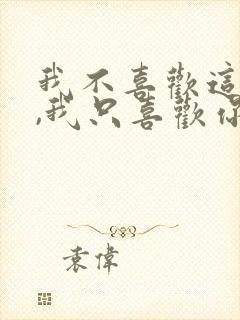 我不喜歡這
,我只喜歡你
袁偉